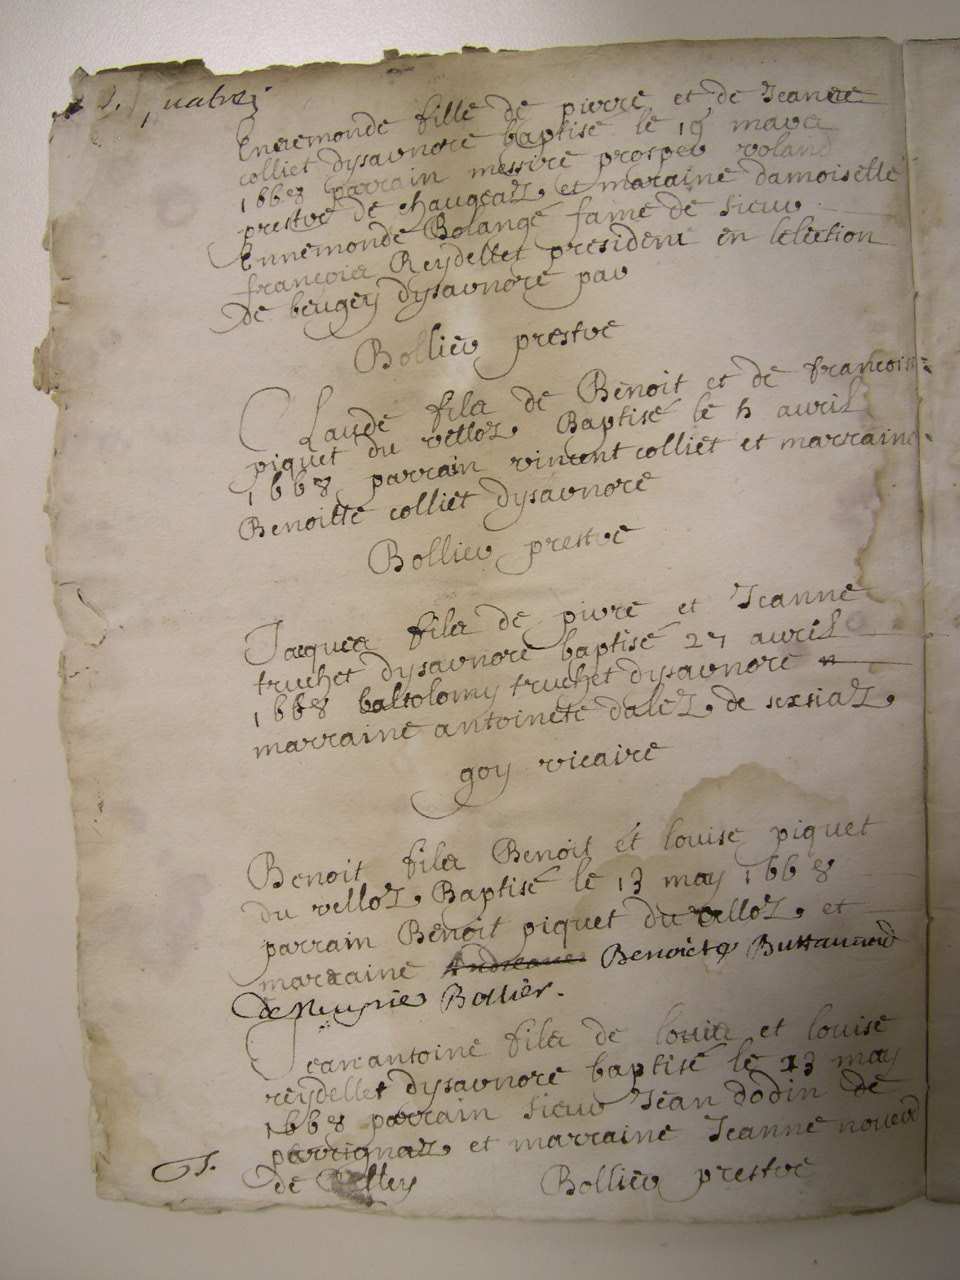 Ennemonde fille de pierre et de Jeanne
colliet dysaunore baptisé le 19 mars
1668 parrain messire prosper roland
prestre de chaugeaz, et maraine damoiselle
Ennemonde Bolange fame de sieur
françois Reydellet president en lelection
de beugey dysaunore par
Bollieu prestre
Claude fils de Benoit et de francoise
piquet du velloz, Baptisé le h auril
1668 parrain vincent colliet et marraine
Benoitte colliet dysaunore
Bollieu prestre
Jacques fils de pierre et Jeanne
truchet dysaunore baptisé 27 auril
1668 baltolomy truchet dysaunore
marraine antoinete dalez, de
goy vicaire
Benoit fils Benoit et louise piquet
du velloz, Baptisé le 13 may 1668
parrain Benoit piquet du velloz, et
marraine Benoicte
Bollier.
Jean antoine fils de louis et louise
reydellet dysaunore baptisé le 13 may
1668 parrain sieur Jean dodin de
parrignaz, et marraine Jeanne
de Bollieu prestre